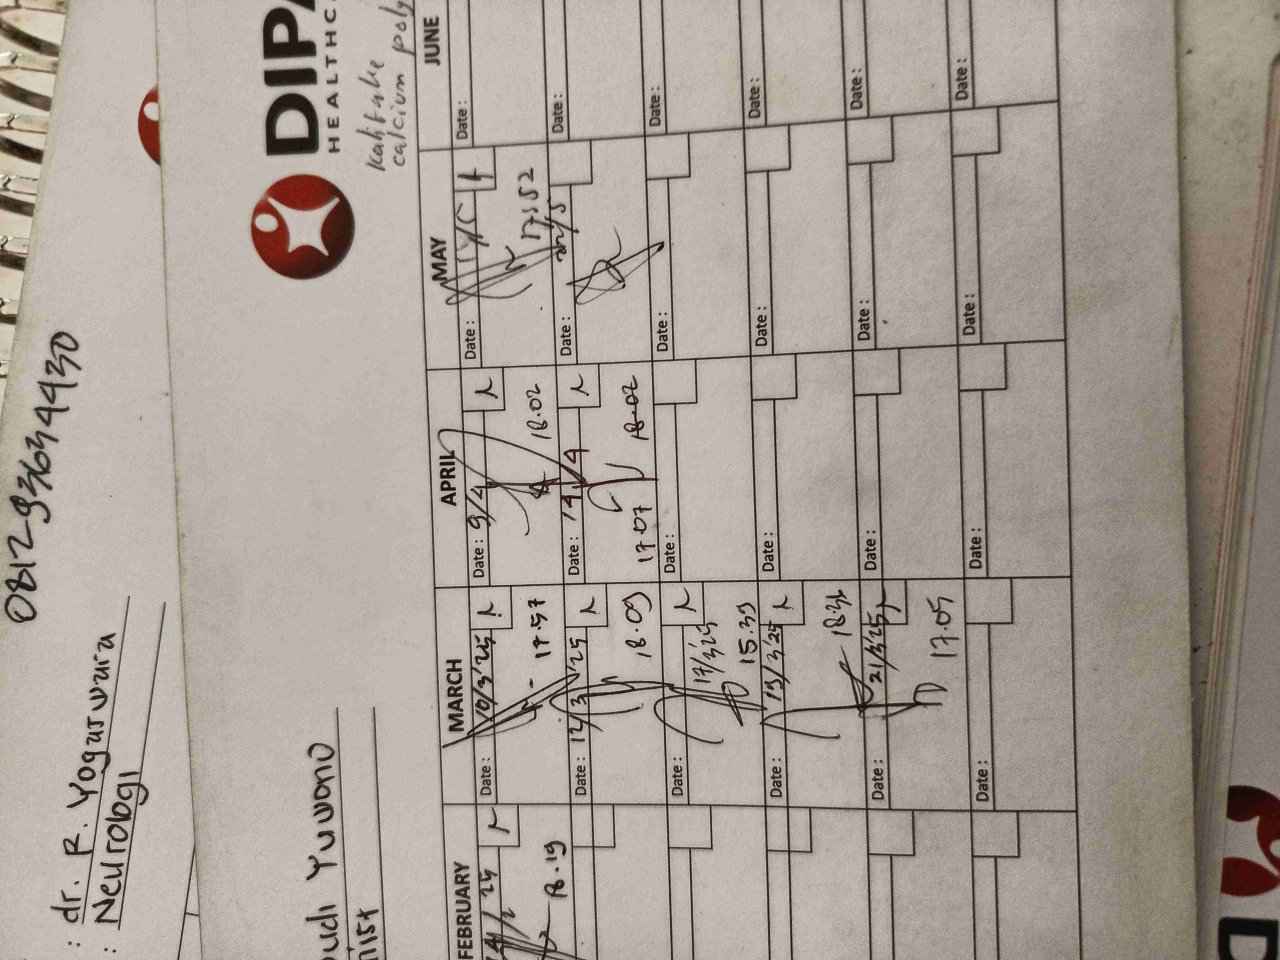 0812 93634430
: dr. R. Yogaswara
: Neurologi
udi Yuwono
DIPA
HEALTHC
Kalitake
calcium poly
FEBRUARY
25
18.19
MARCH
Date : 10/3/'25
17.57
Date : 12/3/'25
18.09
Date : 17/3'25
15.39
Date : 19/3'25
18.31
Date : 21/3'25
17.05
Date :
APRIL
Date : 9/4
18.02
Date : 14/4
17.07 18.02
Date :
Date :
Date :
Date :
MAY
Date :
17:52
Date : 22/5
Date :
Date :
Date :
Date :
JUNE
Date :
Date :
Date :
Date :
Date :
Date :
D